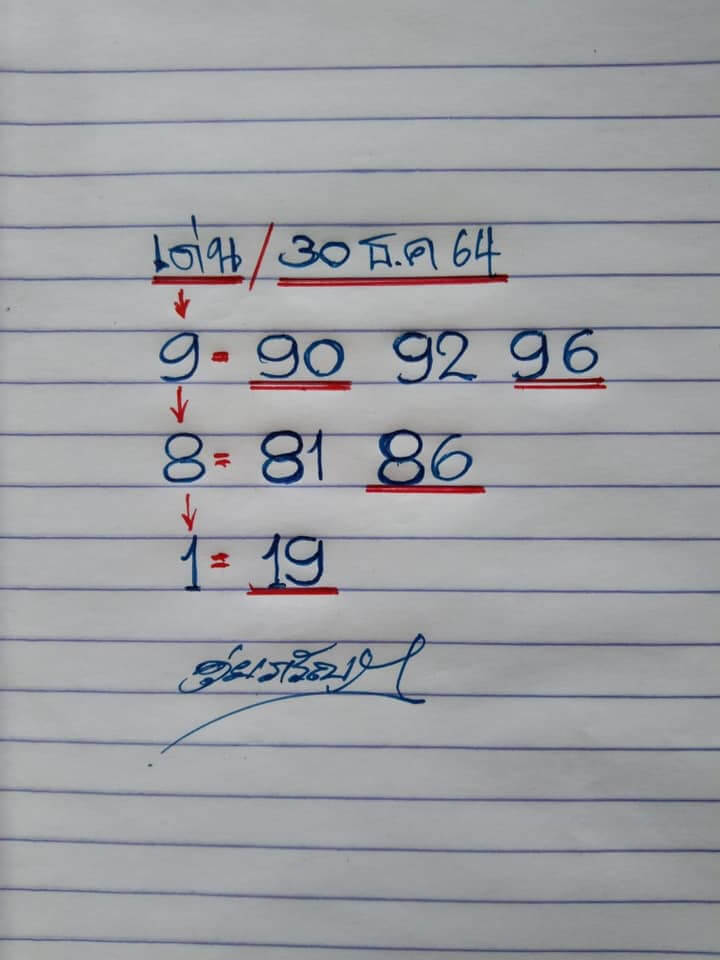 เด่น / 30 ธ.ค 64
9 = 90 92 96
8 = 81 86
1 = 19